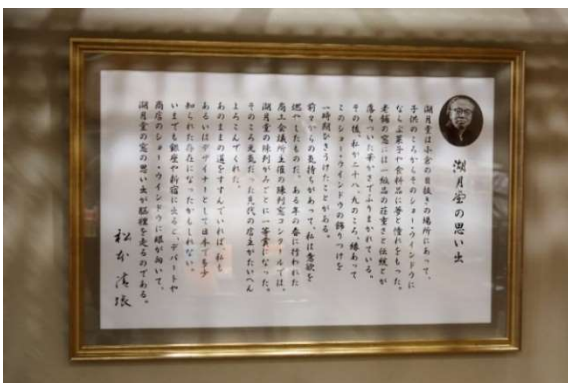 湖月堂の思い出
湖月堂は小倉の目抜きの場所にあって、
子供のころからそのショー・ウインドウに
ならぶ菓子や食料品に夢と憧れをもった。
老舗の窓には一級品の荘重さと伝統とが
落ちついた華かさでふりまかれている。
その後、私が二十八、九のころ、縁あって
このショー・ウインドウの飾りつけを
一時期ひきうけたことがある。
前々からの気持ちがあって、私は意欲を
燃やしたものだ。ある年の春に行われた
商工会議所主催の陳列窓コンクールでは、
湖月堂の陳列がみごとに一等賞になった。
そのころ元気だった先代の店主がたいへん
よろこんでくれた。
あのままの道をすすんでいれば、私も
あるいはデザイナーとして日本で多少
知られた存在になったかもしれない。
いまでも銀座や新宿に出ると、デパートや
商店のショー・ウインドウに眼が向いて、
湖月堂の窓の思い出が脳裡を走るのである。
松本清張